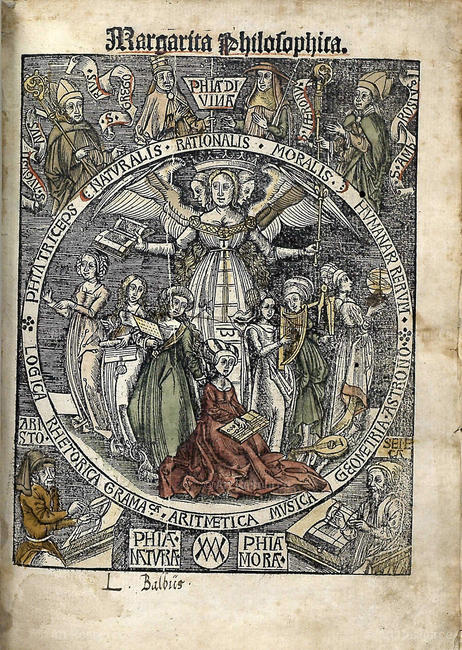 Margarita Philosophica.
PHIA DI
VINA
S. GREGO
NATVRALIS · RATIONALIS · MORALIS
PHIA TRICEPS
HVMANAR RERVM
LOGICA
RHETORICA
GRAMA
ARITMETICA
MVSICA
GEOMETRIA
ASTRONO
ARI
STO·
SENE
CA
PHIA·
NATVRA·
PHIA
MORA·
L. Balbüs.